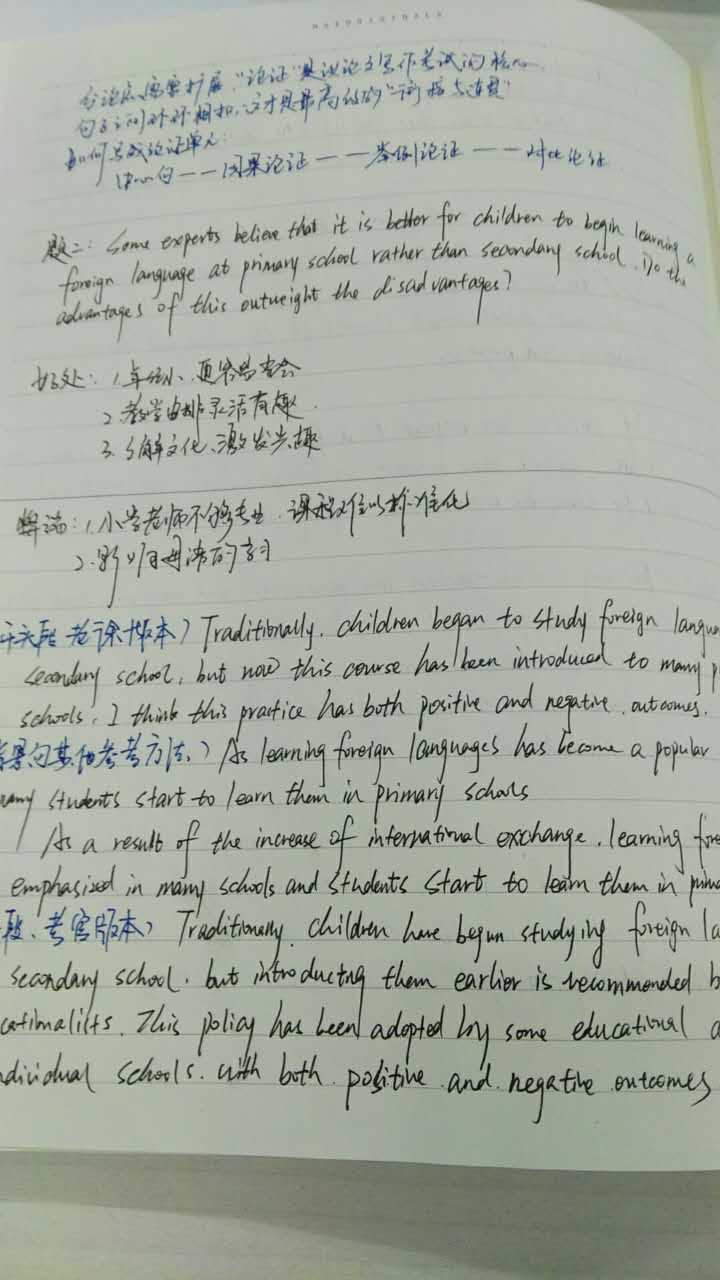 分论点需要扩展，"论证"是议论文写作考试的核心
句子之间环环相扣，这才是最高级的"衔接与连贯"
如何写成论证单元：
中心句——因果论证——举例论证——对比论证
题二：Some experts believe that it is better for children to begin learning a
foreign language at primary school rather than secondary school. Do the
advantages of this outweight the disadvantages?
好处：1.年纪小、更容易学会
2.教学安排灵活有趣.
3.了解文化、激发兴趣
弊端：1.小学老师不够专业.课程难以标准化
2.影响母语的学习
开头段 版本) Traditionally, children began to study foreign
secondary school, but now this course has been introduced to many
schools. I think this practice has both positive and negative outcomes.
背景句其他参考方法.) As learning foreign languages has become a popular
many students start to learn them in primary schools
As a result of the increase of international exchange, learning
emphasized in many schools and students start to learn them in
段、考官版本) Traditionally, children have begun studying foreign
secondary school, but introducing them earlier is recommended
This policy has been adopted by some educational
schools. with both positive and negative outcomes